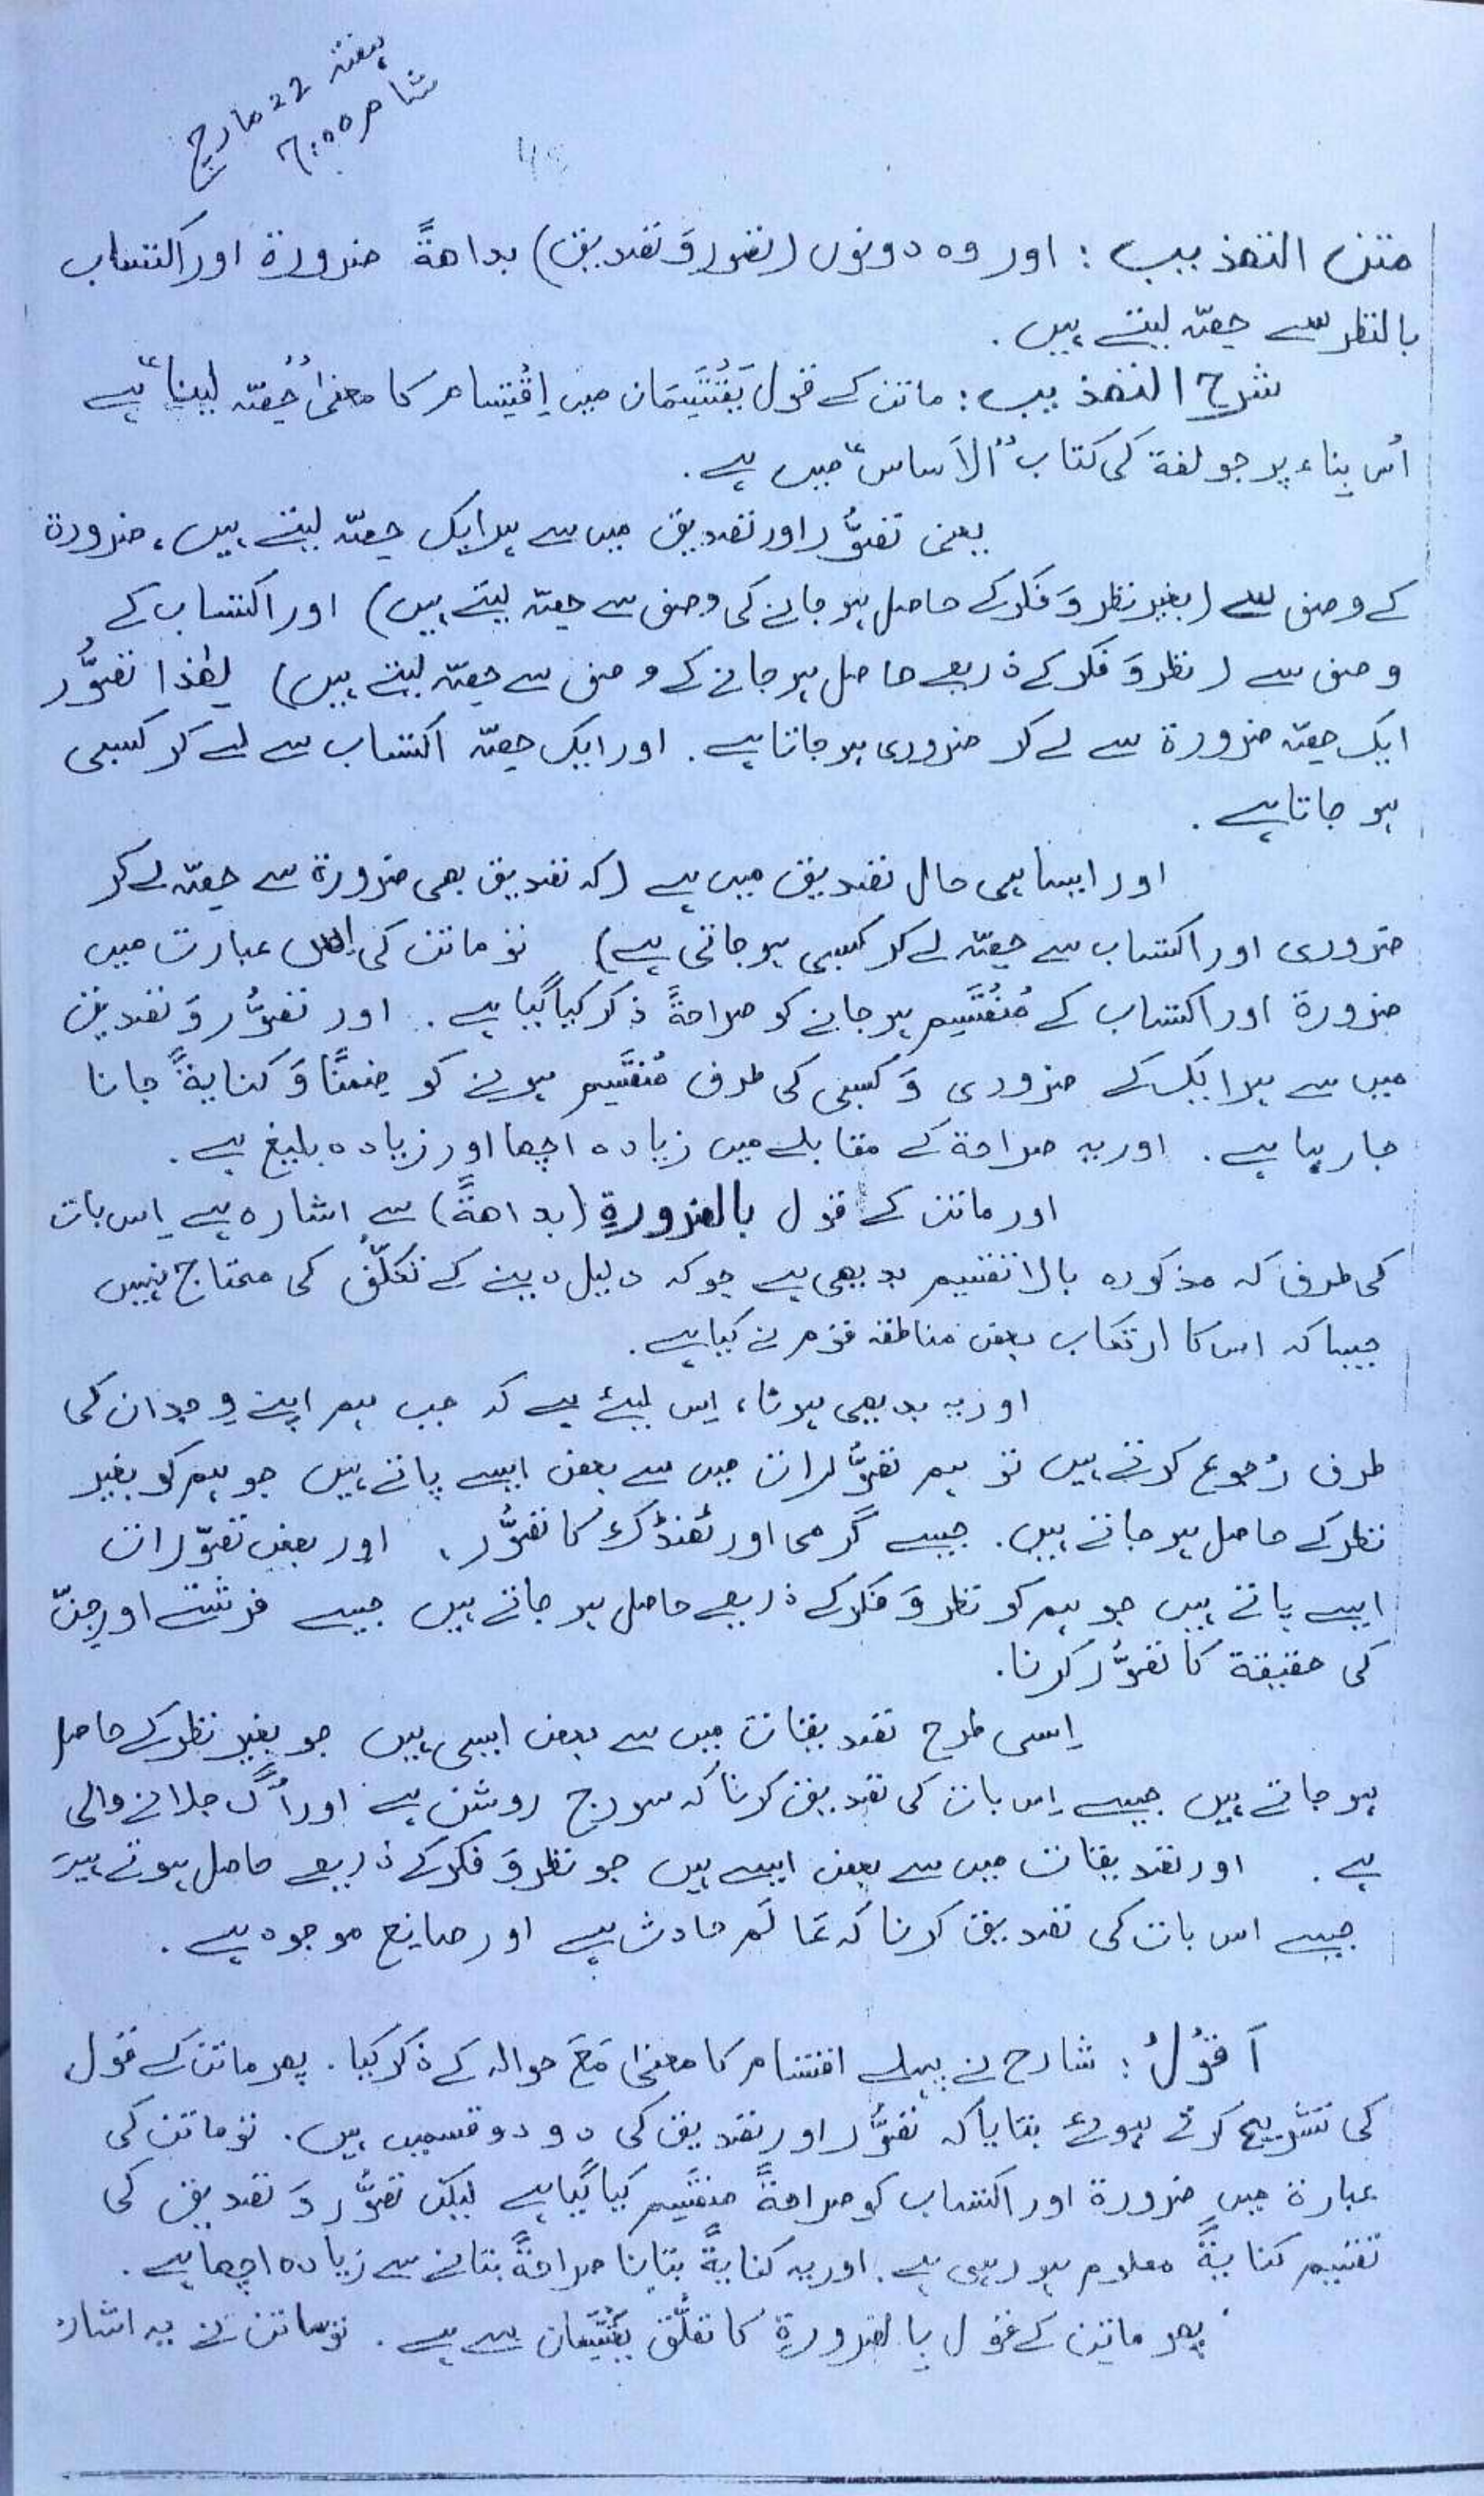 ہفتہ 22 مارچ
شام 6:00
متن التھذیب : اور وہ دونوں (تصور وَ تصدیق) بداھةً ضرورة اور اکتساب
بالنظر سے حِصّہ لیتے ہیں .
شرح التھذیب : ماتن کے قول یَقْتَسِمَان میں اِقْتِسَام کا معنیٰ "حِصّہ لینا" ہے
اُس بِناء پر جو لغة کی کتاب "الاَساس" میں ہے .
یعنی تصوُّر اور تصدیق میں سے ہر ایک حِصّہ لیتے ہیں ، ضرورة
کے وصف سے (بغیر نظر وَ فکر کے حاصل ہو جانے کی وصف سے حصّہ لیتے ہیں) اور اکتساب کے
وصف سے (نظر وَ فکر کے ذریعے حاصل ہو جانے کے وصف سے حصّہ لیتے ہیں) لِھٰذا تصوُّر
ایک حصّہ ضرورة سے لے کر ضروری ہو جاتا ہے . اور ایک حِصّہ اکتساب سے لے کر کسبی
ہو جاتا ہے .
اور ایسا ہی حال تصدیق میں ہے (کہ تصدیق بھی ضرورة سے حصّہ لے کر
ضروری اور اکتساب سے حِصّہ لے کر کسبی ہو جاتی ہے) تو ماتن کی اِس عبارت میں
ضرورة اور اکتساب کے مُنْقَسِم ہو جانے کو صراحةً ذکر کیا گیا ہے . اور تصوُّر وَ تصدیق
میں سے ہر ایک کے ضروری وَ کسبی کی طرف مُنقَسِم ہونے کو ضِمنًا وَ کنایةً جانا
جا رہا ہے . اور یہ صراحة کے مقابلے میں زیادہ اچھا اور زیادہ بلیغ ہے .
اور ماتن کے قول بالضرورةِ (بداھةً) سے اشارہ ہے اِس بات
کی طرف کہ مذکورہ بالا تقسیم بدیھی ہے جو کہ دلیل دینے کے تَکلُّف کی محتاج نہیں
جیسا کہ اس کا ارتکاب بعض مناطقہ قوم نے کیا ہے .
اور یہ بدیھی ہونا ، اِس لیئے ہے کہ جب ہم اپنے وِجدان کی
طرف رُجوع کرتے ہیں تو ہم تصوُّرات میں سے بعض ایسے پاتے ہیں جو ہم کو بغیر
نظر کے حاصل ہو جاتے ہیں . جیسے گرمی اور ٹھنڈک کا تصوُّر ، اور بعض تصوّرات
ایسے پاتے ہیں جو ہم کو نظر وَ فکر کے ذریعے حاصل ہو جاتے ہیں جیسے فرشتے اور جِنّ
کی حقیقة کا تصوُّر کرنا .
اِسی طرح تصدیقات میں سے بعض ایسی ہیں جو بغیر نظر کے حاصل
ہو جاتے ہیں جیسے اِس بات کی تصدیق کرنا کہ سورج روشن ہے اور آگ جلانے والی
ہے . اور تصدیقات میں سے بعض ایسے ہیں جو نظر وَ فکر کے ذریعے حاصل ہوتے ہیں
جیسے اس بات کی تصدیق کرنا کہ عَالَم حادث ہے اور صانِع موجود ہے .
اَقُوْلُ : شارح نے پہلے اقتسام کا معنیٰ مَعَ حوالہ کے ذکر کیا . پھر ماتن کے قول
کی تشریح کرتے ہوئے بتایا کہ تصوُّر اور تصدیق کی دو دو قسمیں ہیں . تو ماتن کی
عبارة میں ضرورة اور اکتساب کو صراحةً منقَسِم کیا گیا ہے لیکن تصوُّر وَ تصدیق کی
تقسیم کنایةً معلوم ہو رہی ہے . اور یہ کنایةً بتانا صراحةً بتانے سے زیادہ اچھا ہے .
پھر ماتن کے قول بالضرورةِ کا تعلُّق یَقْتَسِمَان سے ہے . تو ماتن نے یہ اشارہ